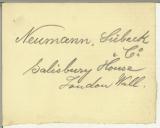 Neumann, Lübeck
& Co
Salisbury House
London Wall.